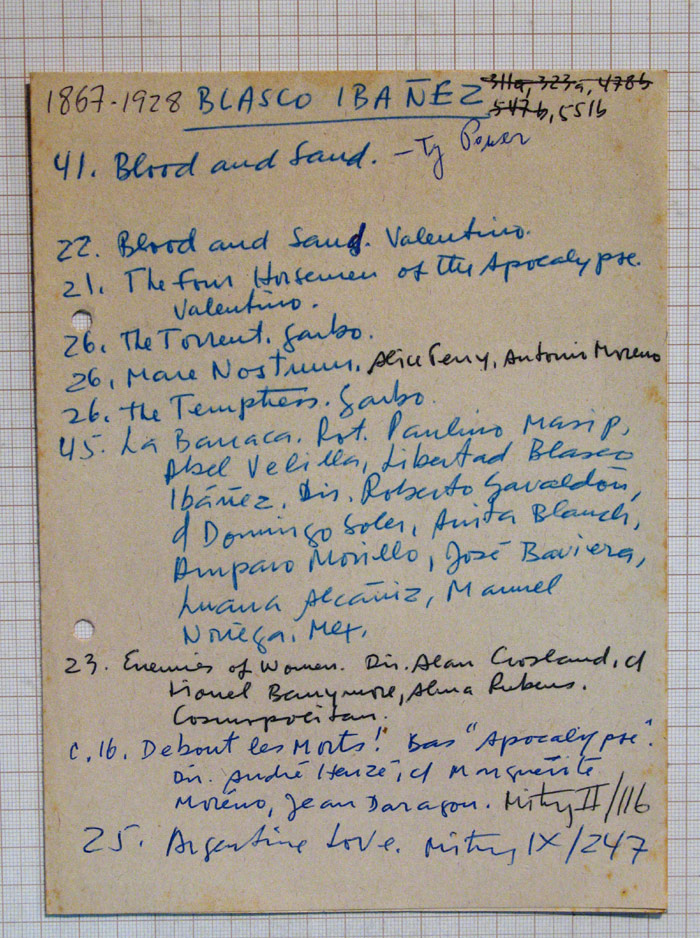 1867-1928 BLASCO IBAÑEZ 311a, 323a, 478b
547b, 551b
41. Blood and Sand. - Ty Power
22. Blood and Sand. Valentino.
21. The Four Horsemen of the Apocalypse.
Valentino.
26. The Torrent. Garbo.
26. Mare Nostrum. Alice Terry, Antonio Moreno
26. The Temptress. Garbo.
45. La Barraca. Rot. Paulino Masip,
Abel Velilla, Libertad Blasco
Ibáñez. Dir. Roberto Gavaldón,
d Domingo Soler, Anita Blanch,
Amparo Morillo, José Baviera,
Luana Alcañiz, Manuel
Noriega. Mex.
23. Enemies of Women. Dir. Alan Crosland, d
Lionel Barrymore, Alma Rubens.
Cosmopolitan.
c.16. Debout les Morts! Bas "Apocalypse".
Dir. André Heuzé, d Marguerite
Moréno, Jean Daragon. Mitry II/116
25. Argentine Love. Mitry IX/247